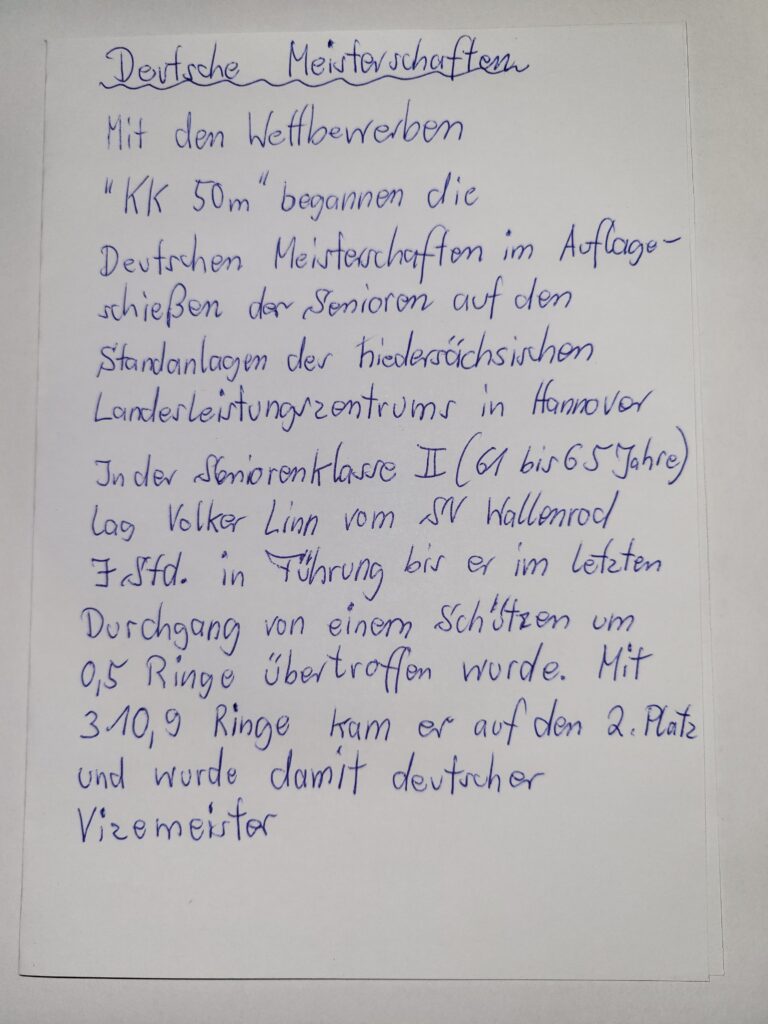 Deutsche Meisterschaften
Mit den Wettbewerben
"KK 50m" begannen die
Deutschen Meisterschaften im Auflage-
schießen der Senioren auf den
Standanlagen des niedersächsischen
Landesleistungszentrums in Hannover
In der Seniorenklasse II (61 bis 65 Jahre)
lag Volker Linn vom SV Wallenrod
7 Std. in Führung bis er im letzten
Durchgang von einem Schützen um
0,5 Ringe übertroffen wurde. Mit
310,9 Ringe kam er auf den 2. Platz
und wurde damit deutscher
Vizemeister